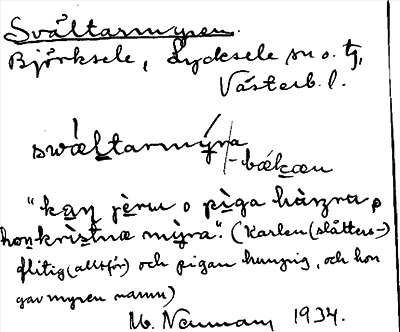 Svältarmyren.
Björksele, Lycksele sn o. tg,
Västerb. l.
swæltarmýra
-bækæn
"kaŋ jèru o pìga hàŋru o
hon kristnæ mỳra". (Karlen (slåtters-)
flitig (alltför) och pigan hungrig, och hon
gav myren namn)
M. Neumann 1934.